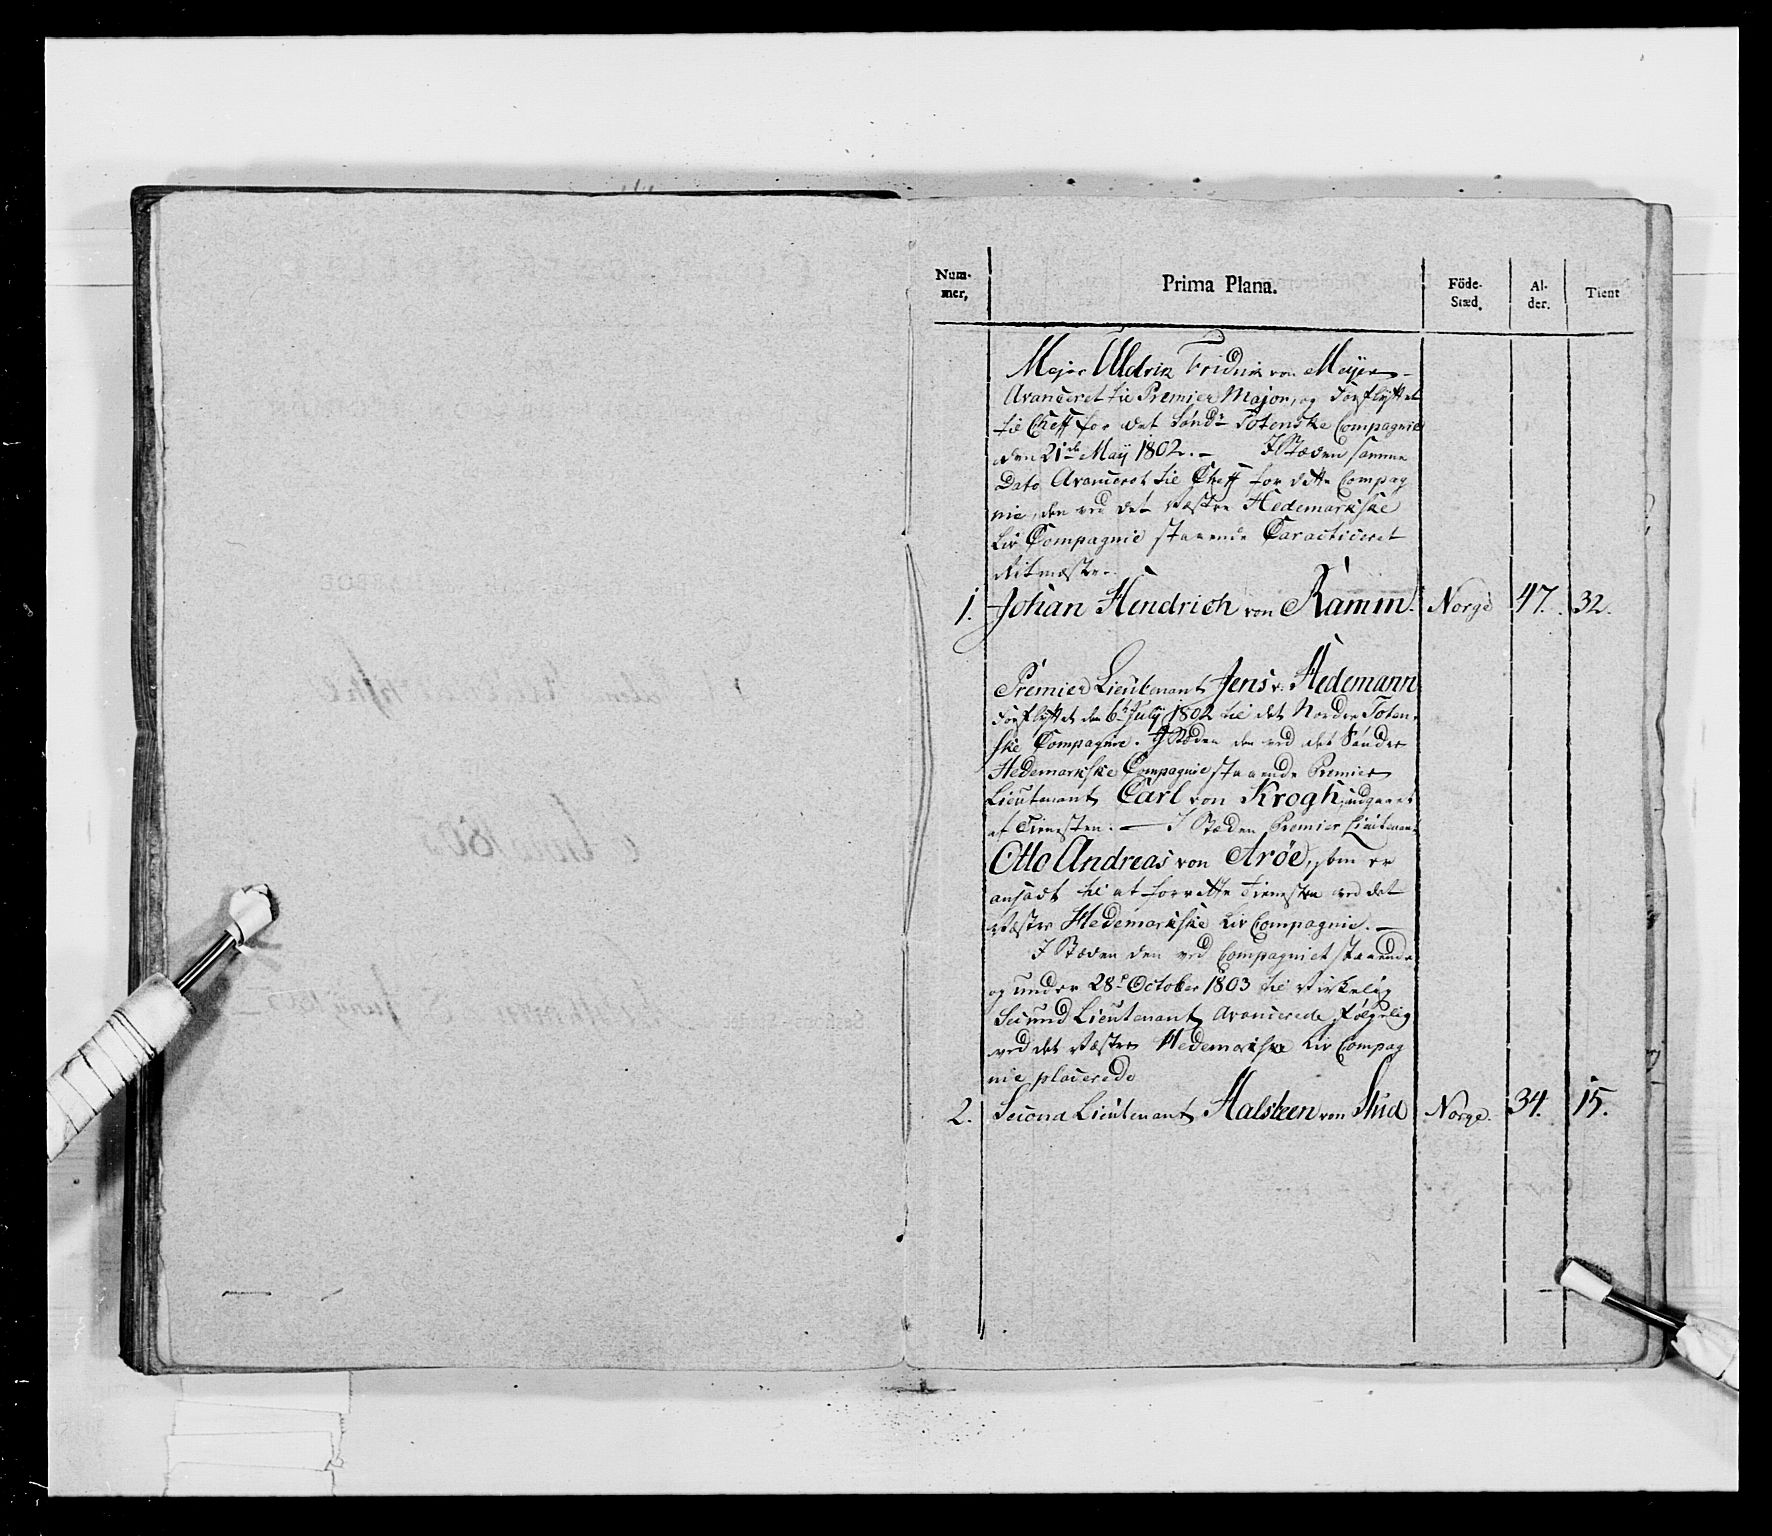 Num-
mer,
Prima Plana.
Föde-
Stæd.
Al-
der.
Tient
Major Uldrik Fridrik von Meijer
Avanceret til Premier Major, og forflyttet
til Cheff for det Sönd: Totenske Compagnie
den 21de Maij 1802. – I Stæden samme
Dato Avanceret til Cheff for dette Compag
nie, den ved det Væstre Hedemarkske
Liv Compagnie staaende Caracticeret
Ritmæster
1. Johan Hendrich von Ramm. Norge 47. 32.
Premier Lieutenant Jens v: Hedemann
forflyttet den 6te July 1802 til det Nordre Toten-
ske Compagnie. I Stæden den ved det Söndre
Hedemarkske Compagnie staaende Premier
Lieutenant Carl von Krogh, udgaaet
af Tienesten. — I Stæden Premier Lieutenant
Otto Andreas von Aröe, som er
ansadt til at forrette Tieneste ved det
Væstre Hedemarkske Liv Compagnie. —
I Stæden den ved Compagniet staaende
og under 28de October 1803 til Virkelig
Secund Lieutenant Avancerede, følgelig
ved det Væstre Hedemarkske Liv Compag
nie placerede
2. Second Lieutenant Halsteen von Stud Norge. 34. 15.